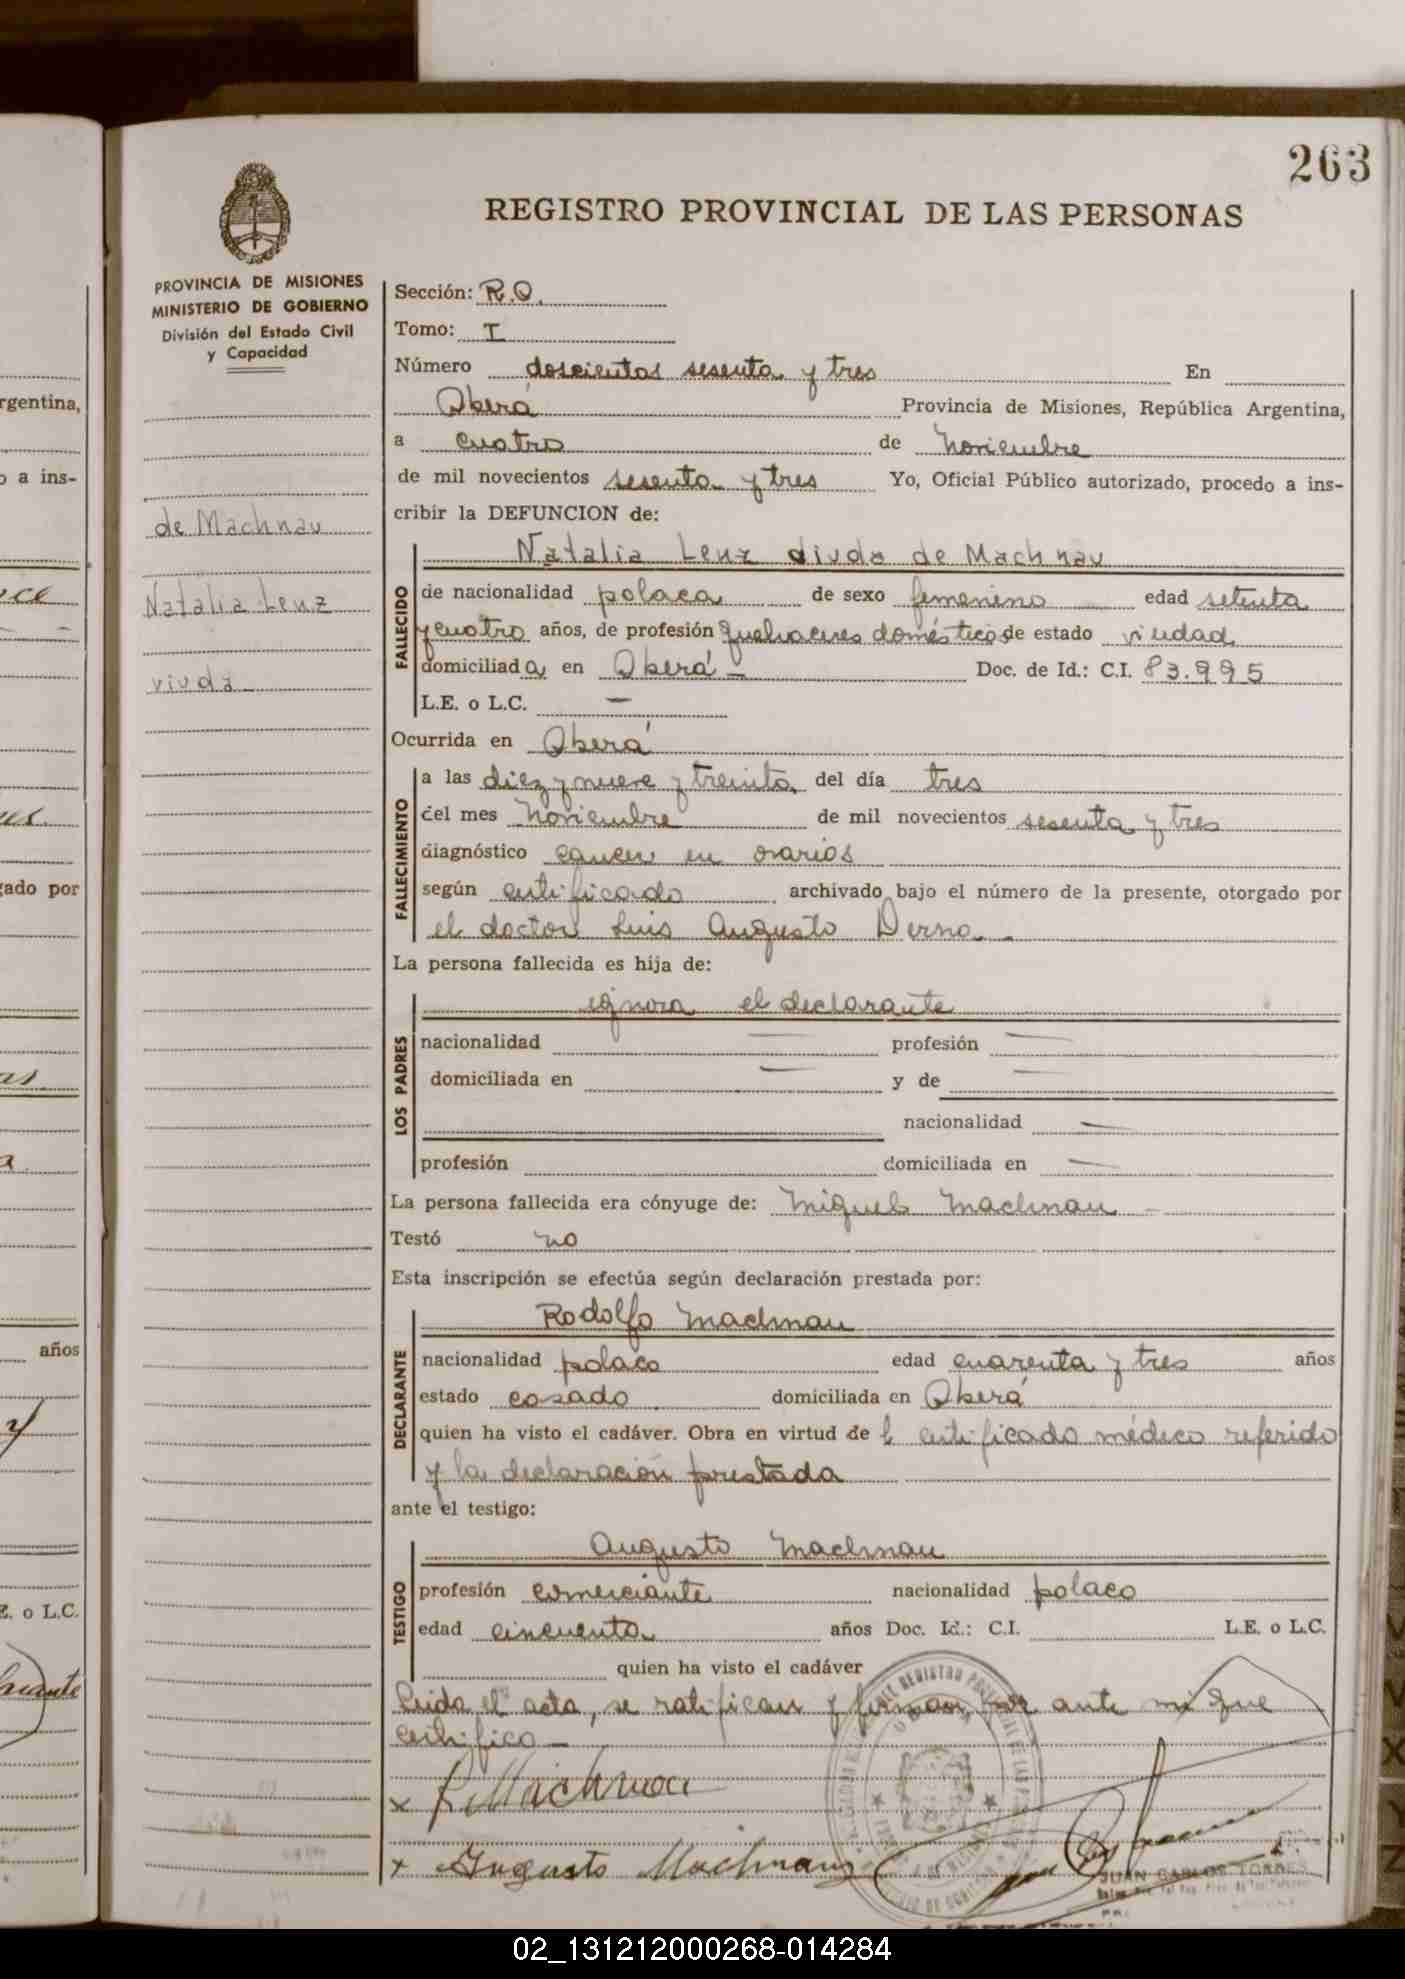 263
REGISTRO PROVINCIAL DE LAS PERSONAS
PROVINCIA DE MISIONES
MINISTERIO DE GOBIERNO
División del Estado Civil
y Capacidad
de Machnau
Natalia Lenz
viuda
Sección: R.O.
Tomo: I
Número doscientos sesenta y tres En
Oberá Provincia de Misiones, República Argentina,
a cuatro de Noviembre
de mil novecientos sesenta y tres Yo, Oficial Público autorizado, procedo a ins-
cribir la DEFUNCION de:
Natalia Lenz viuda de Machnau
FALLECIDO
de nacionalidad polaca de sexo femenino edad setenta
y cuatro años, de profesión quehaceres domésticos de estado viudad
domiciliada en Oberá - Doc. de Id.: C.I. 83.995
L.E. o L.C. -
Ocurrida en Oberá
FALLECIMIENTO
a las diez y nueve y treinta del día tres
del mes Noviembre de mil novecientos sesenta y tres
diagnóstico cancer en ovarios
según certificado archivado bajo el número de la presente, otorgado por
el doctor Luis Augusto Derna -
La persona fallecida es hija de:
LOS PADRES
ignora el declarante
nacionalidad - profesión -
domiciliada en - y de -
nacionalidad -
profesión domiciliada en -
La persona fallecida era cónyuge de: Miguel Machnau -
Testó no
Esta inscripción se efectúa según declaración prestada por:
DECLARANTE
Rodolfo Machnau
nacionalidad polaco edad cuarenta y tres años
estado casado domiciliada en Oberá
quien ha visto el cadáver. Obra en virtud del certificado médico referido
y la declaración prestada
ante el testigo:
TESTIGO
Augusto Machnau
profesión comerciante nacionalidad polaco
edad cincuenta años Doc. Id.: C.I. L.E. o L.C.
quien ha visto el cadáver
Leida el acta, se ratifican y firman por ante mi que
certifico -
x R. Machnau
x Augusto Machnau
JUAN CARLOS TORRES
rgentina,
o a ins-
gado por
años
E. o L.C.
02_131212000268-014284